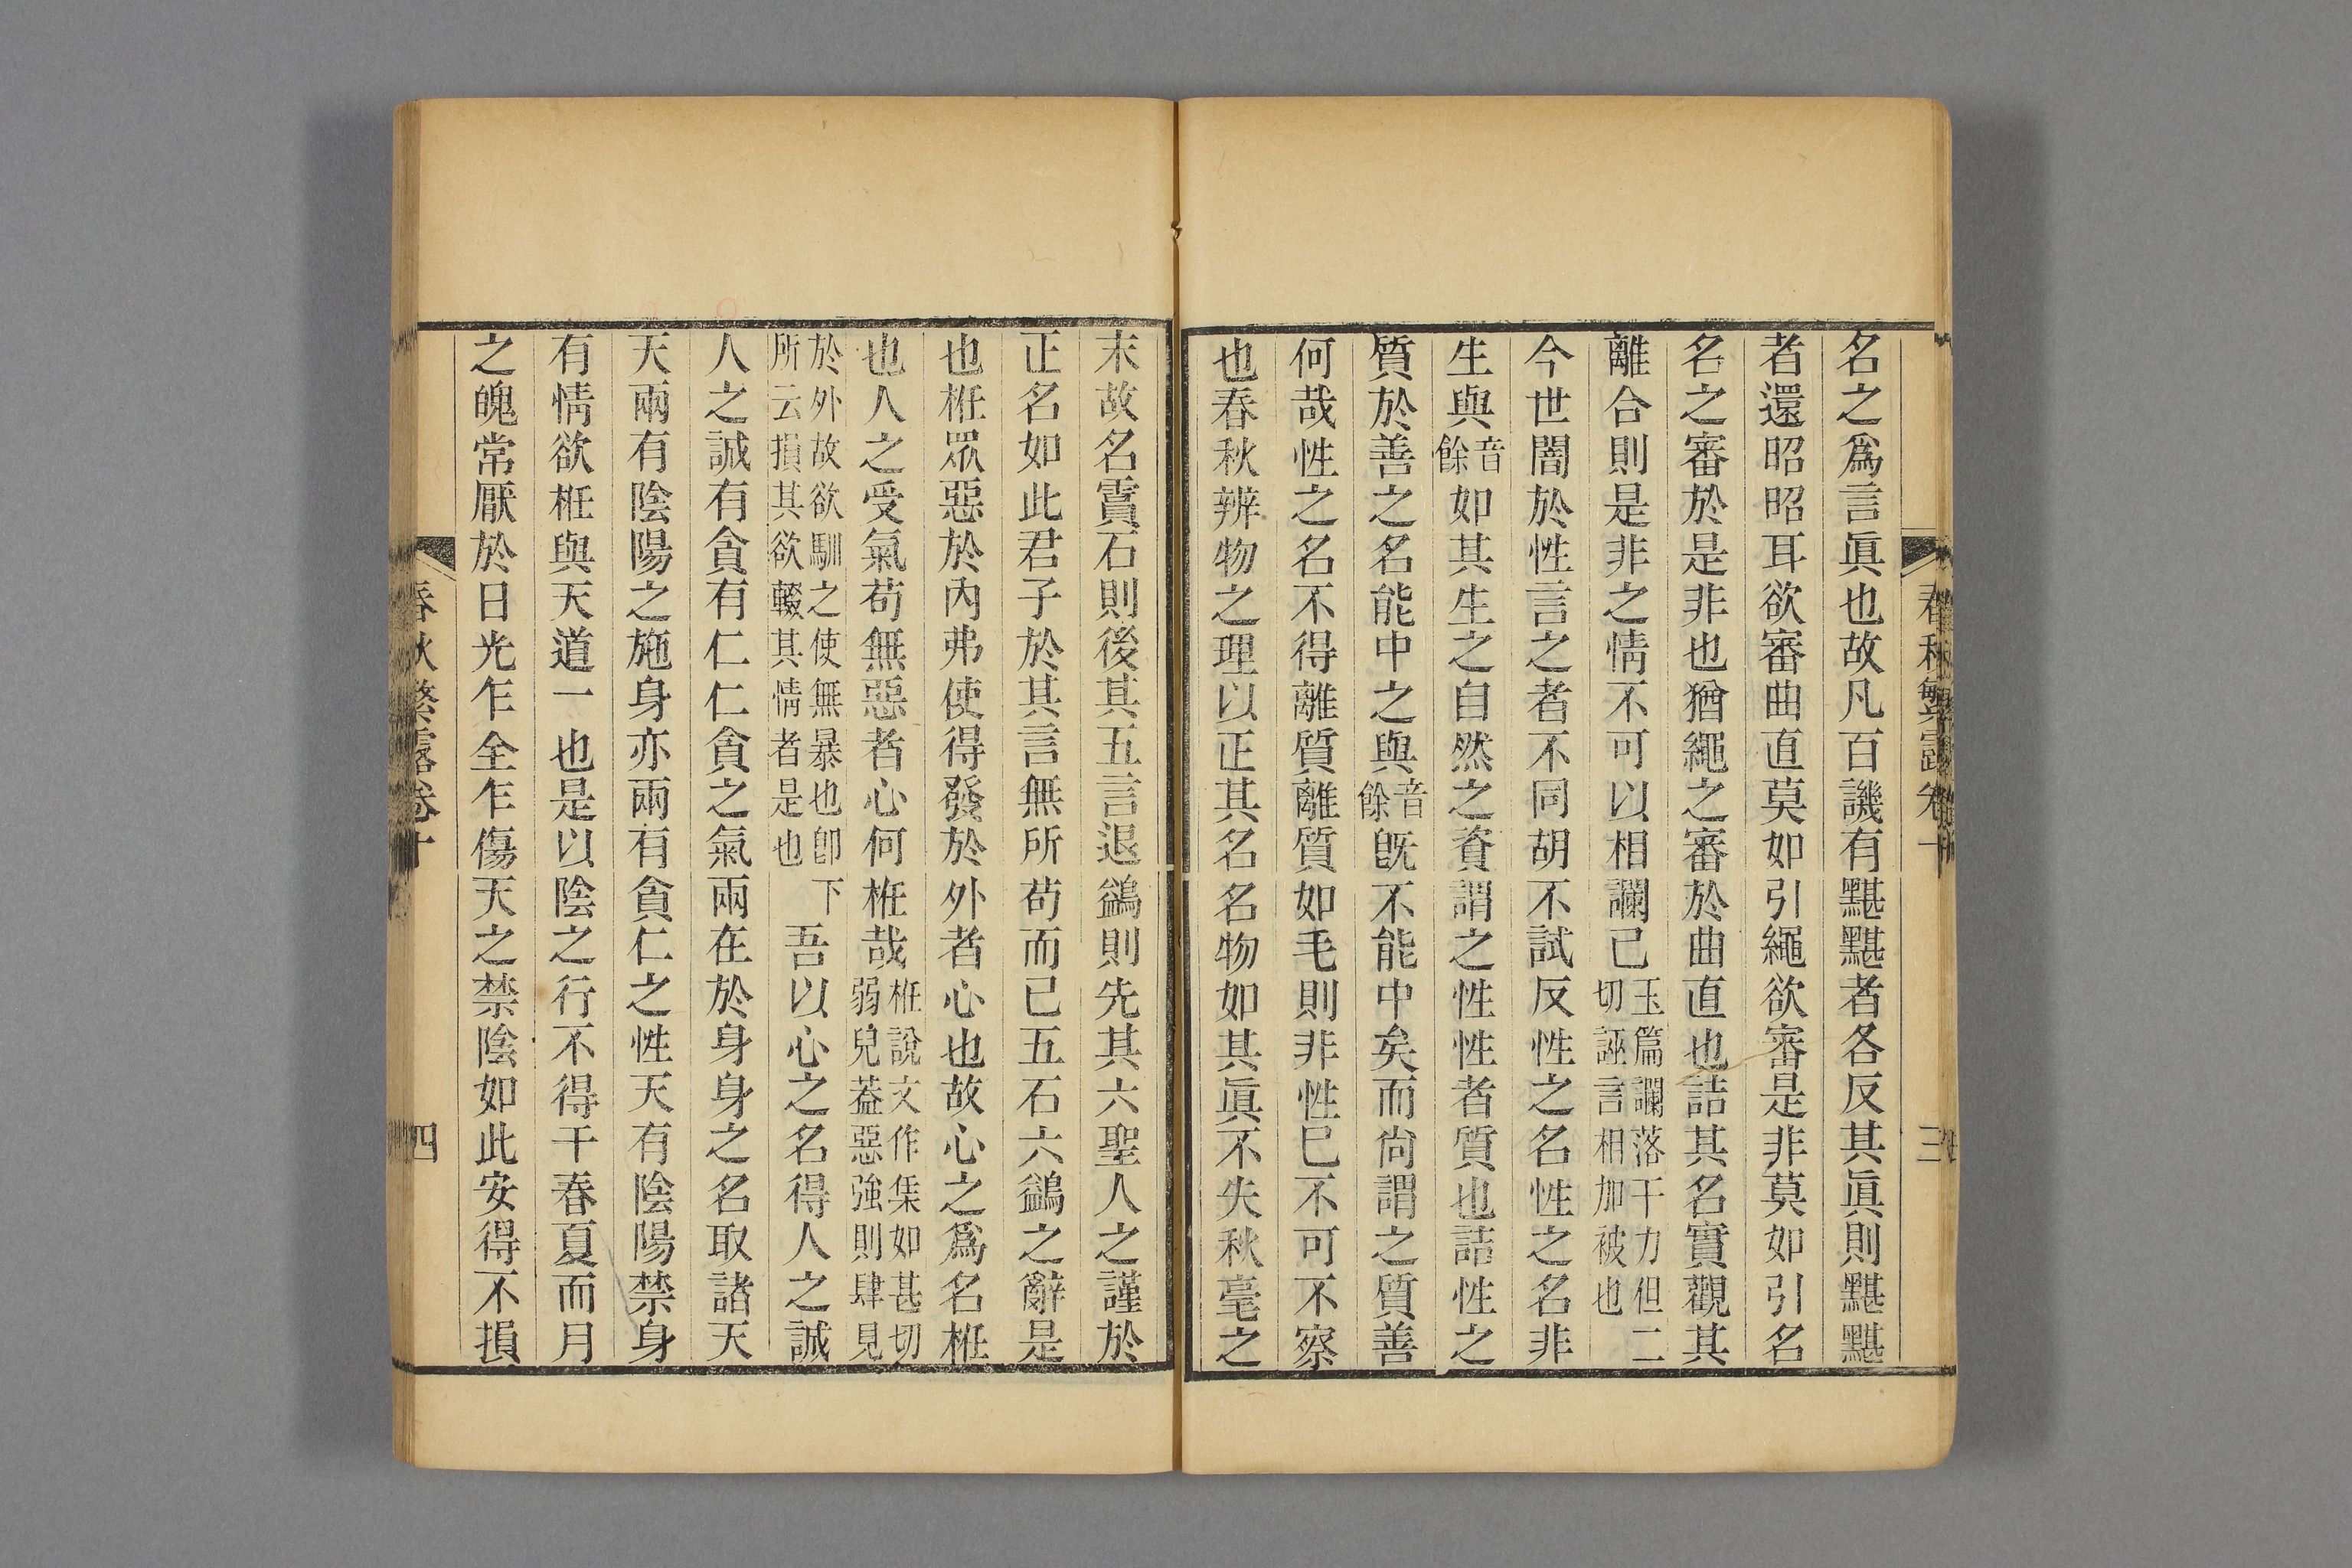 春秋繁露卷十
三
名之爲言眞也故凡百譏有黮黮者各反其眞則黮黮
者還昭昭耳欲審曲直莫如引繩欲審是非莫如引名
名之審於是非也猶繩之審於曲直也詰其名實觀其
離合則是非之情不可以相讕已玉篇讕落干力但二切誣言相加被也
今世闇於性言之者不同胡不試反性之名性之名非
生與音餘如其生之自然之資謂之性性者質也詰性之
質於善之名能中之與音餘旣不能中矣而尙謂之質善
何哉性之名不得離質離質如毛則非性已不可不察
也春秋辨物之理以正其名名物如其眞不失秋毫之
末故名霣石則後其五言退鷁則先其六聖人之謹於
正名如此君子於其言無所苟而已五石六鷁之辭是
也栣眾惡於內弗使得發於外者心也故心之爲名栣
也人之受氣苟無惡者心何栣哉栣說文作集如甚切弱皃葢惡強則肆見
於外故欲馴之使無暴也卽下所云損其欲輟其情者是也吾以心之名得人之誠
人之誠有貪有仁仁貪之氣兩在於身身之名取諸天
天兩有陰陽之施身亦兩有貪仁之性天有陰陽禁身
有情欲栣與天道一也是以陰之行不得干春夏而月
之魄常厭於日光乍全乍傷天之禁陰如此安得不損
春秋繁露卷十
四